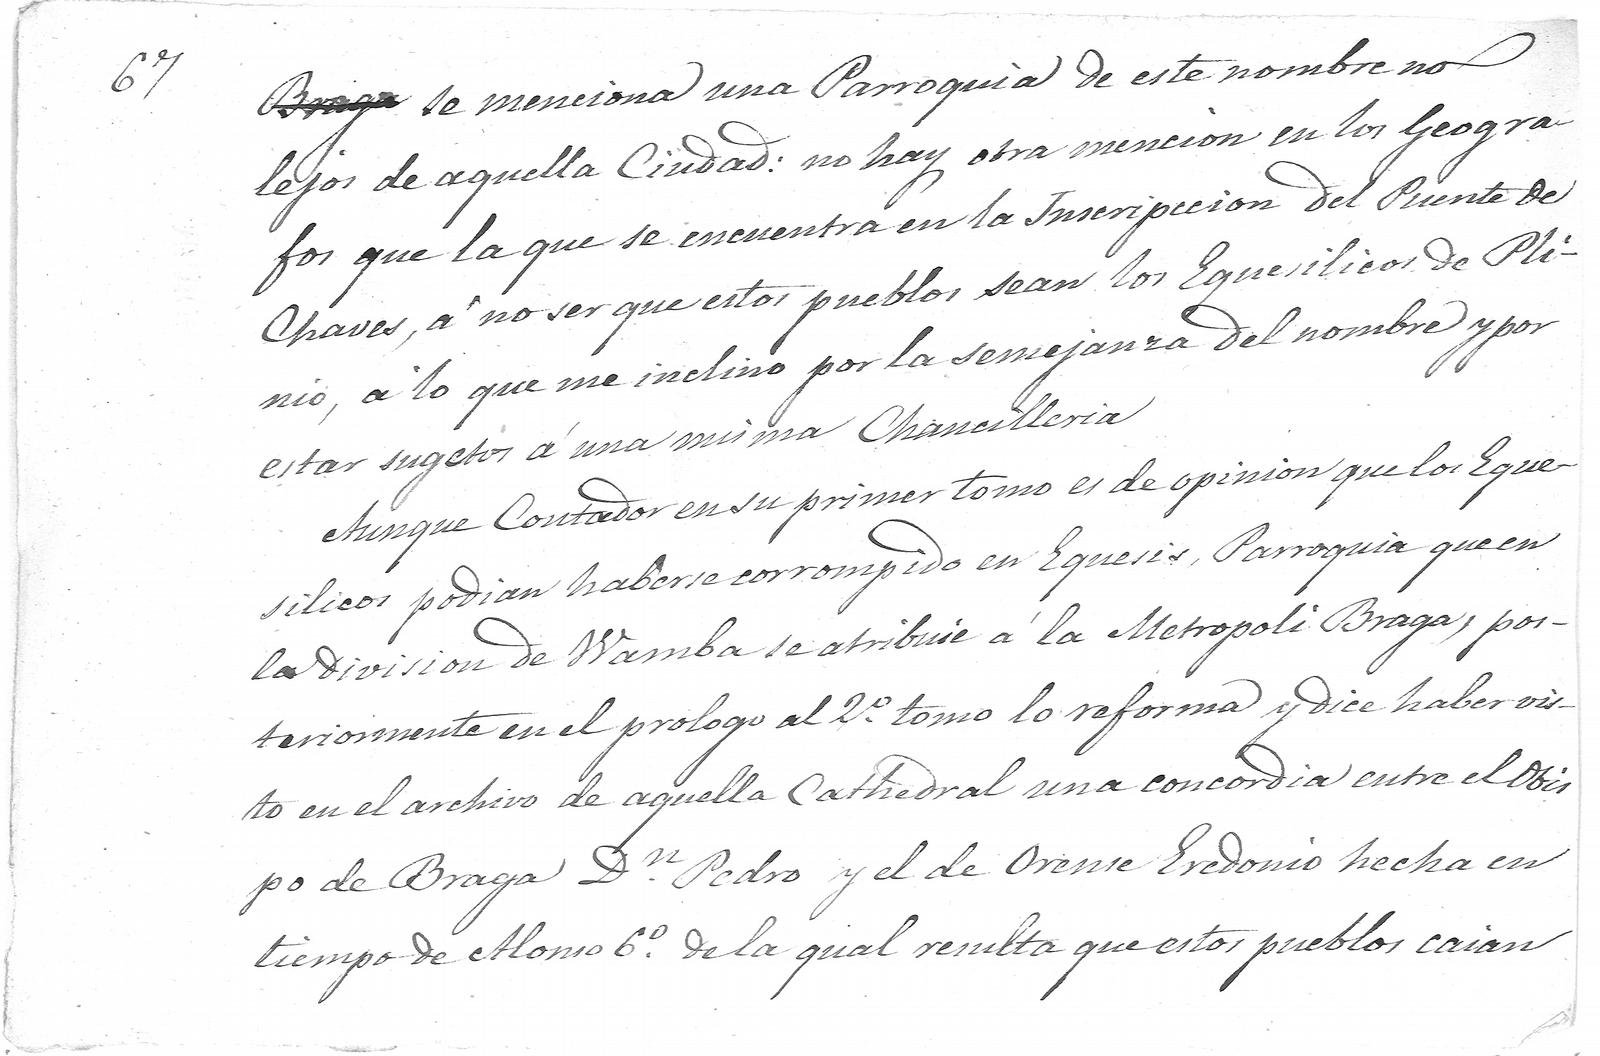 67
Braga se menciona una Parroquia de este nombre no
lejos de aquella Ciudad: no hay otra mencion en los Geogra-
fos que la que se encuentra en la Inscripccion del Puente de
Chaves, á no ser que estos pueblos sean los Equesilicos de Pli-
nio, á lo que me inclino por la semejanza del nombre y por
estar sugetos á una misma Chancilleria
Aunque Contador en su primer tomo es de opinion que los Eque-
silicos podian haberse corrompido en Equesis, Parroquia que en
la division de Wamba se atribuie á la Metropoli Braga, pos-
teriormente en el prologo al 2º. tomo lo reforma y dice haber vis-
to en el archivo de aquella Cathedral una concordia entre el Obis
po de Braga Dn. Pedro y el de Orense Eredonio hecha en
tiempo de Alonso 6º. de la qual resulta que estos pueblos caian